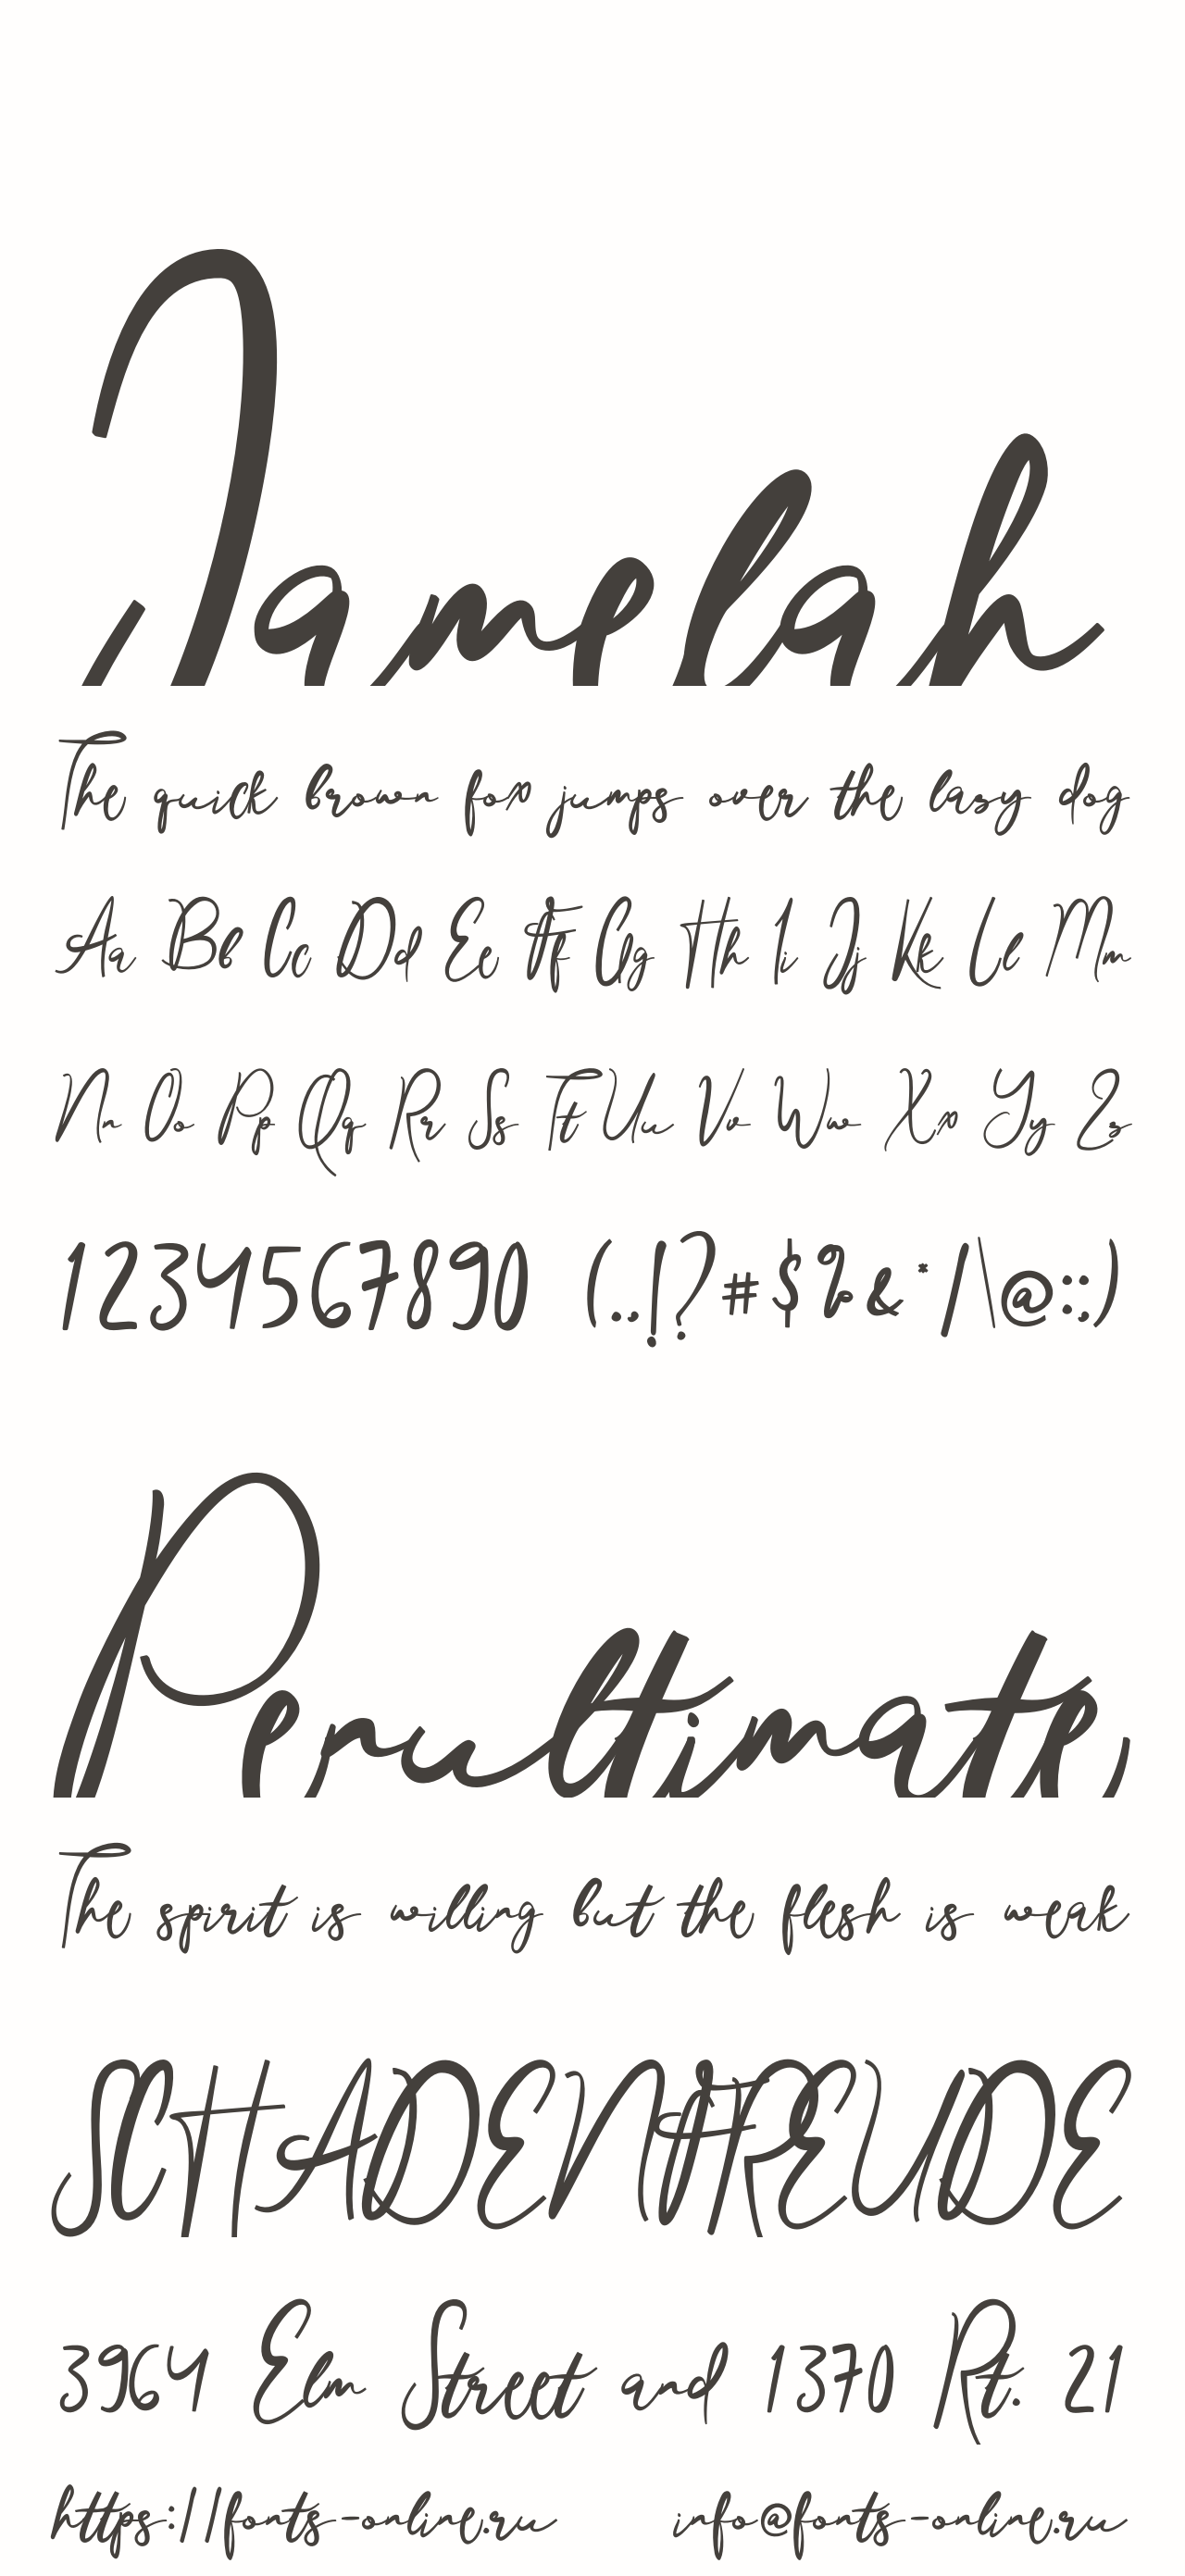 Jamelah
The quick brown fox jumps over the lazy dog
Aa Bb Cc Dd Ee Ff Gg Hh Ii Jj Kk Ll Mm
Nn Oo Pp Qq Rr Ss Tt Uu Vv Ww Xx Yy Zz
1234567890 (.,!?#$%&*/\@:;)
Penultimate,
The spirit is willing but the flesh is weak
SCHADENFREUDE
3964 Elm Street and 1370 Rt. 21
https://fonts-online.ru info@fonts-online.ru